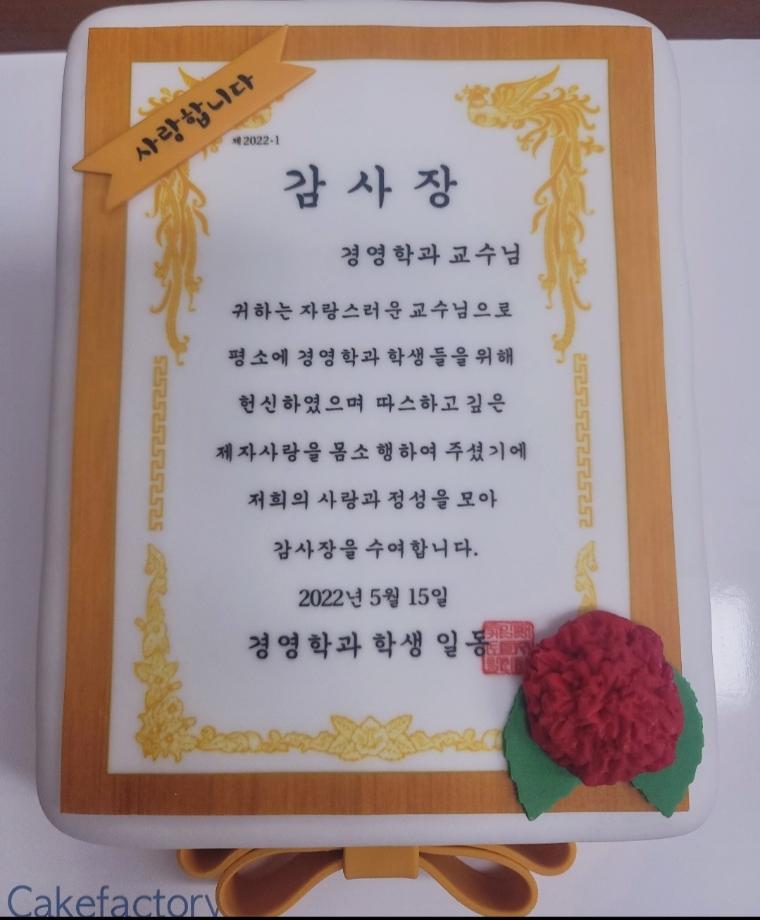 사랑합니다
제2022-1
감사장
경영학과 교수님
귀하는 자랑스러운 교수님으로
평소에 경영학과 학생들을 위해
헌신하였으며 따스하고 깊은
제자사랑을 몸소 행하여 주셨기에
저희의 사랑과 정성을 모아
감사장을 수여합니다.
2022년 5월 15일
경영학과 학생 일동
Cakefactory